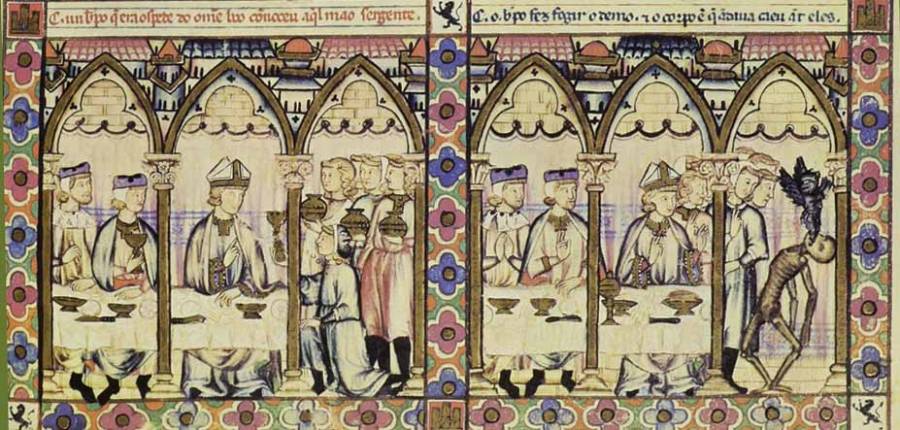 C. un bp̃o q̃ era ospede do om̃e bõo cõnoceu aq̃l mao sergente.
C. o. bp̃o fez fogir o demo. ⁊ o corpo ẽ q̃ andaua caeu ãt eles.